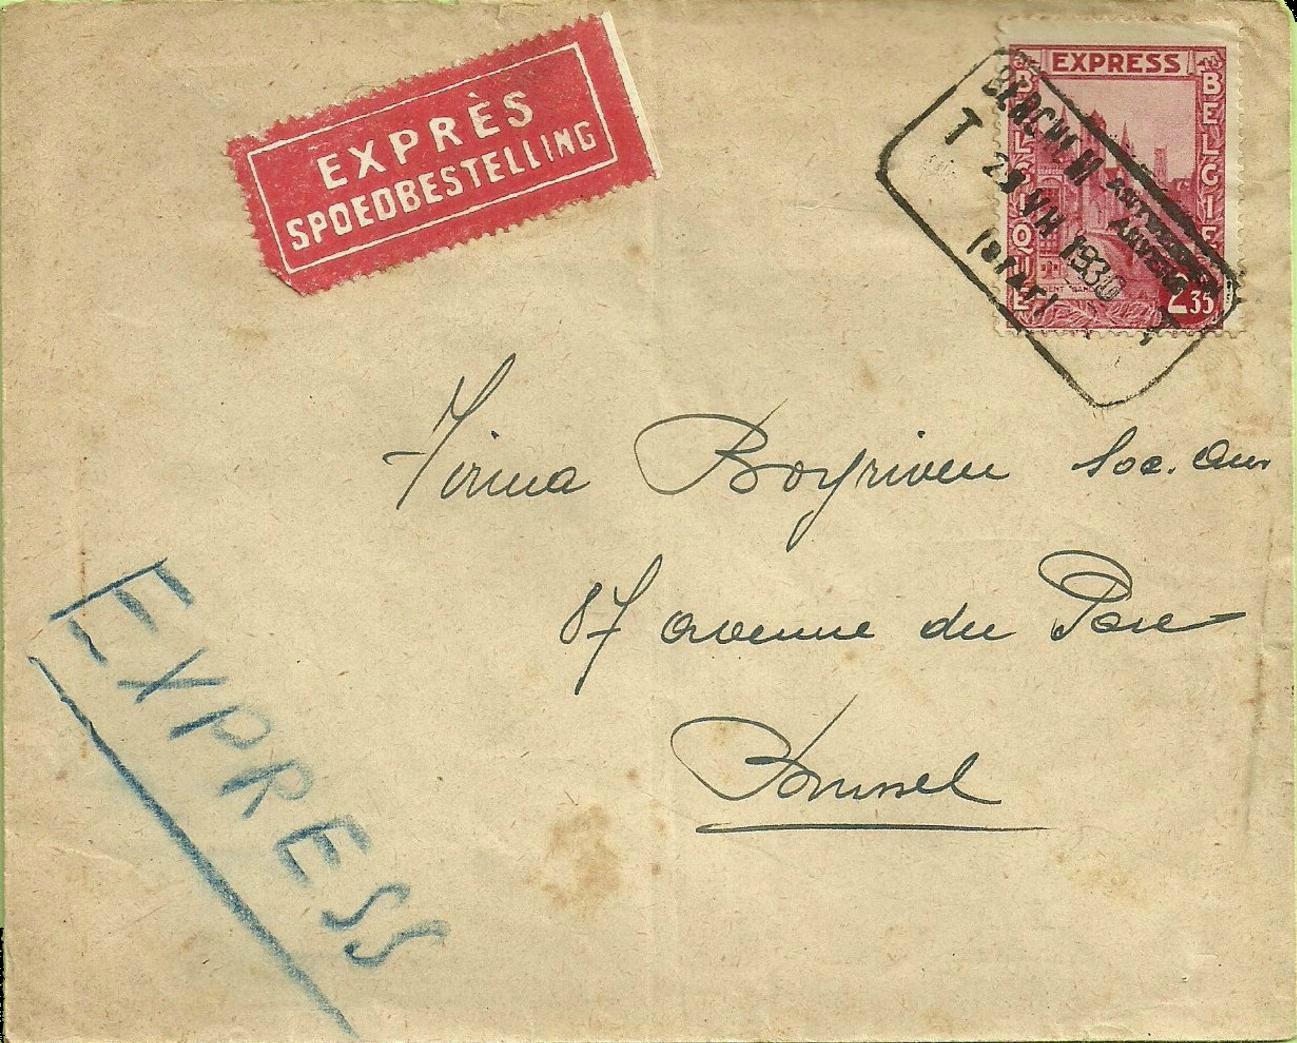 EXPRÈS
SPOEDBESTELLING
EXPRESS
BELGIQUE
BELGIE
2 35
BERCHEM
ANTWERPEN
ANVERS
T T
29 VII 1930
Firma Boyriven Soc. An
87 avenue du Parc
Brussel
EXPRESS